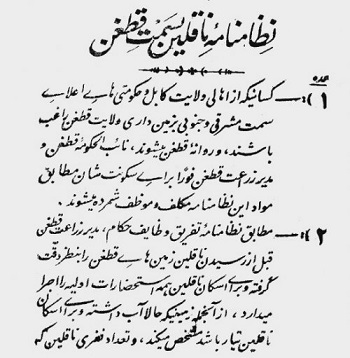 نظامنامۀ ناقلین بسمت قطغن
عدد
۱): — کسانیکه از اهالی ولایت کابل و حکومتی هاے اعلاے
سمت مشرقی و جنوبی بزمین داری ولایت قطغن راغب
باشند، و روانۀ قطغن میشوند، نائب الحکومۀ قطغن و
مدیر زراعت قطغن فوراً براے سکونت شان مطابق
مواد این نظامنامه مکلف و موظف شمرده میشوند .
۲): — مطابق نظامنامۀ تفریق وظایف حکام، مدیر زراعت قطغن
قبل از رسیدن ناقلین زمین هاے قطغن را بنظر دقت
گرفته و براے اسکان ناقلین همه استحضارات اولیه را اجرا
میدارد، از آنجمله زمینیکه حالا آب داشته و براے اسکان
ناقلین تیار باشد مشخص میکند، و تعداد نفری ناقلین که